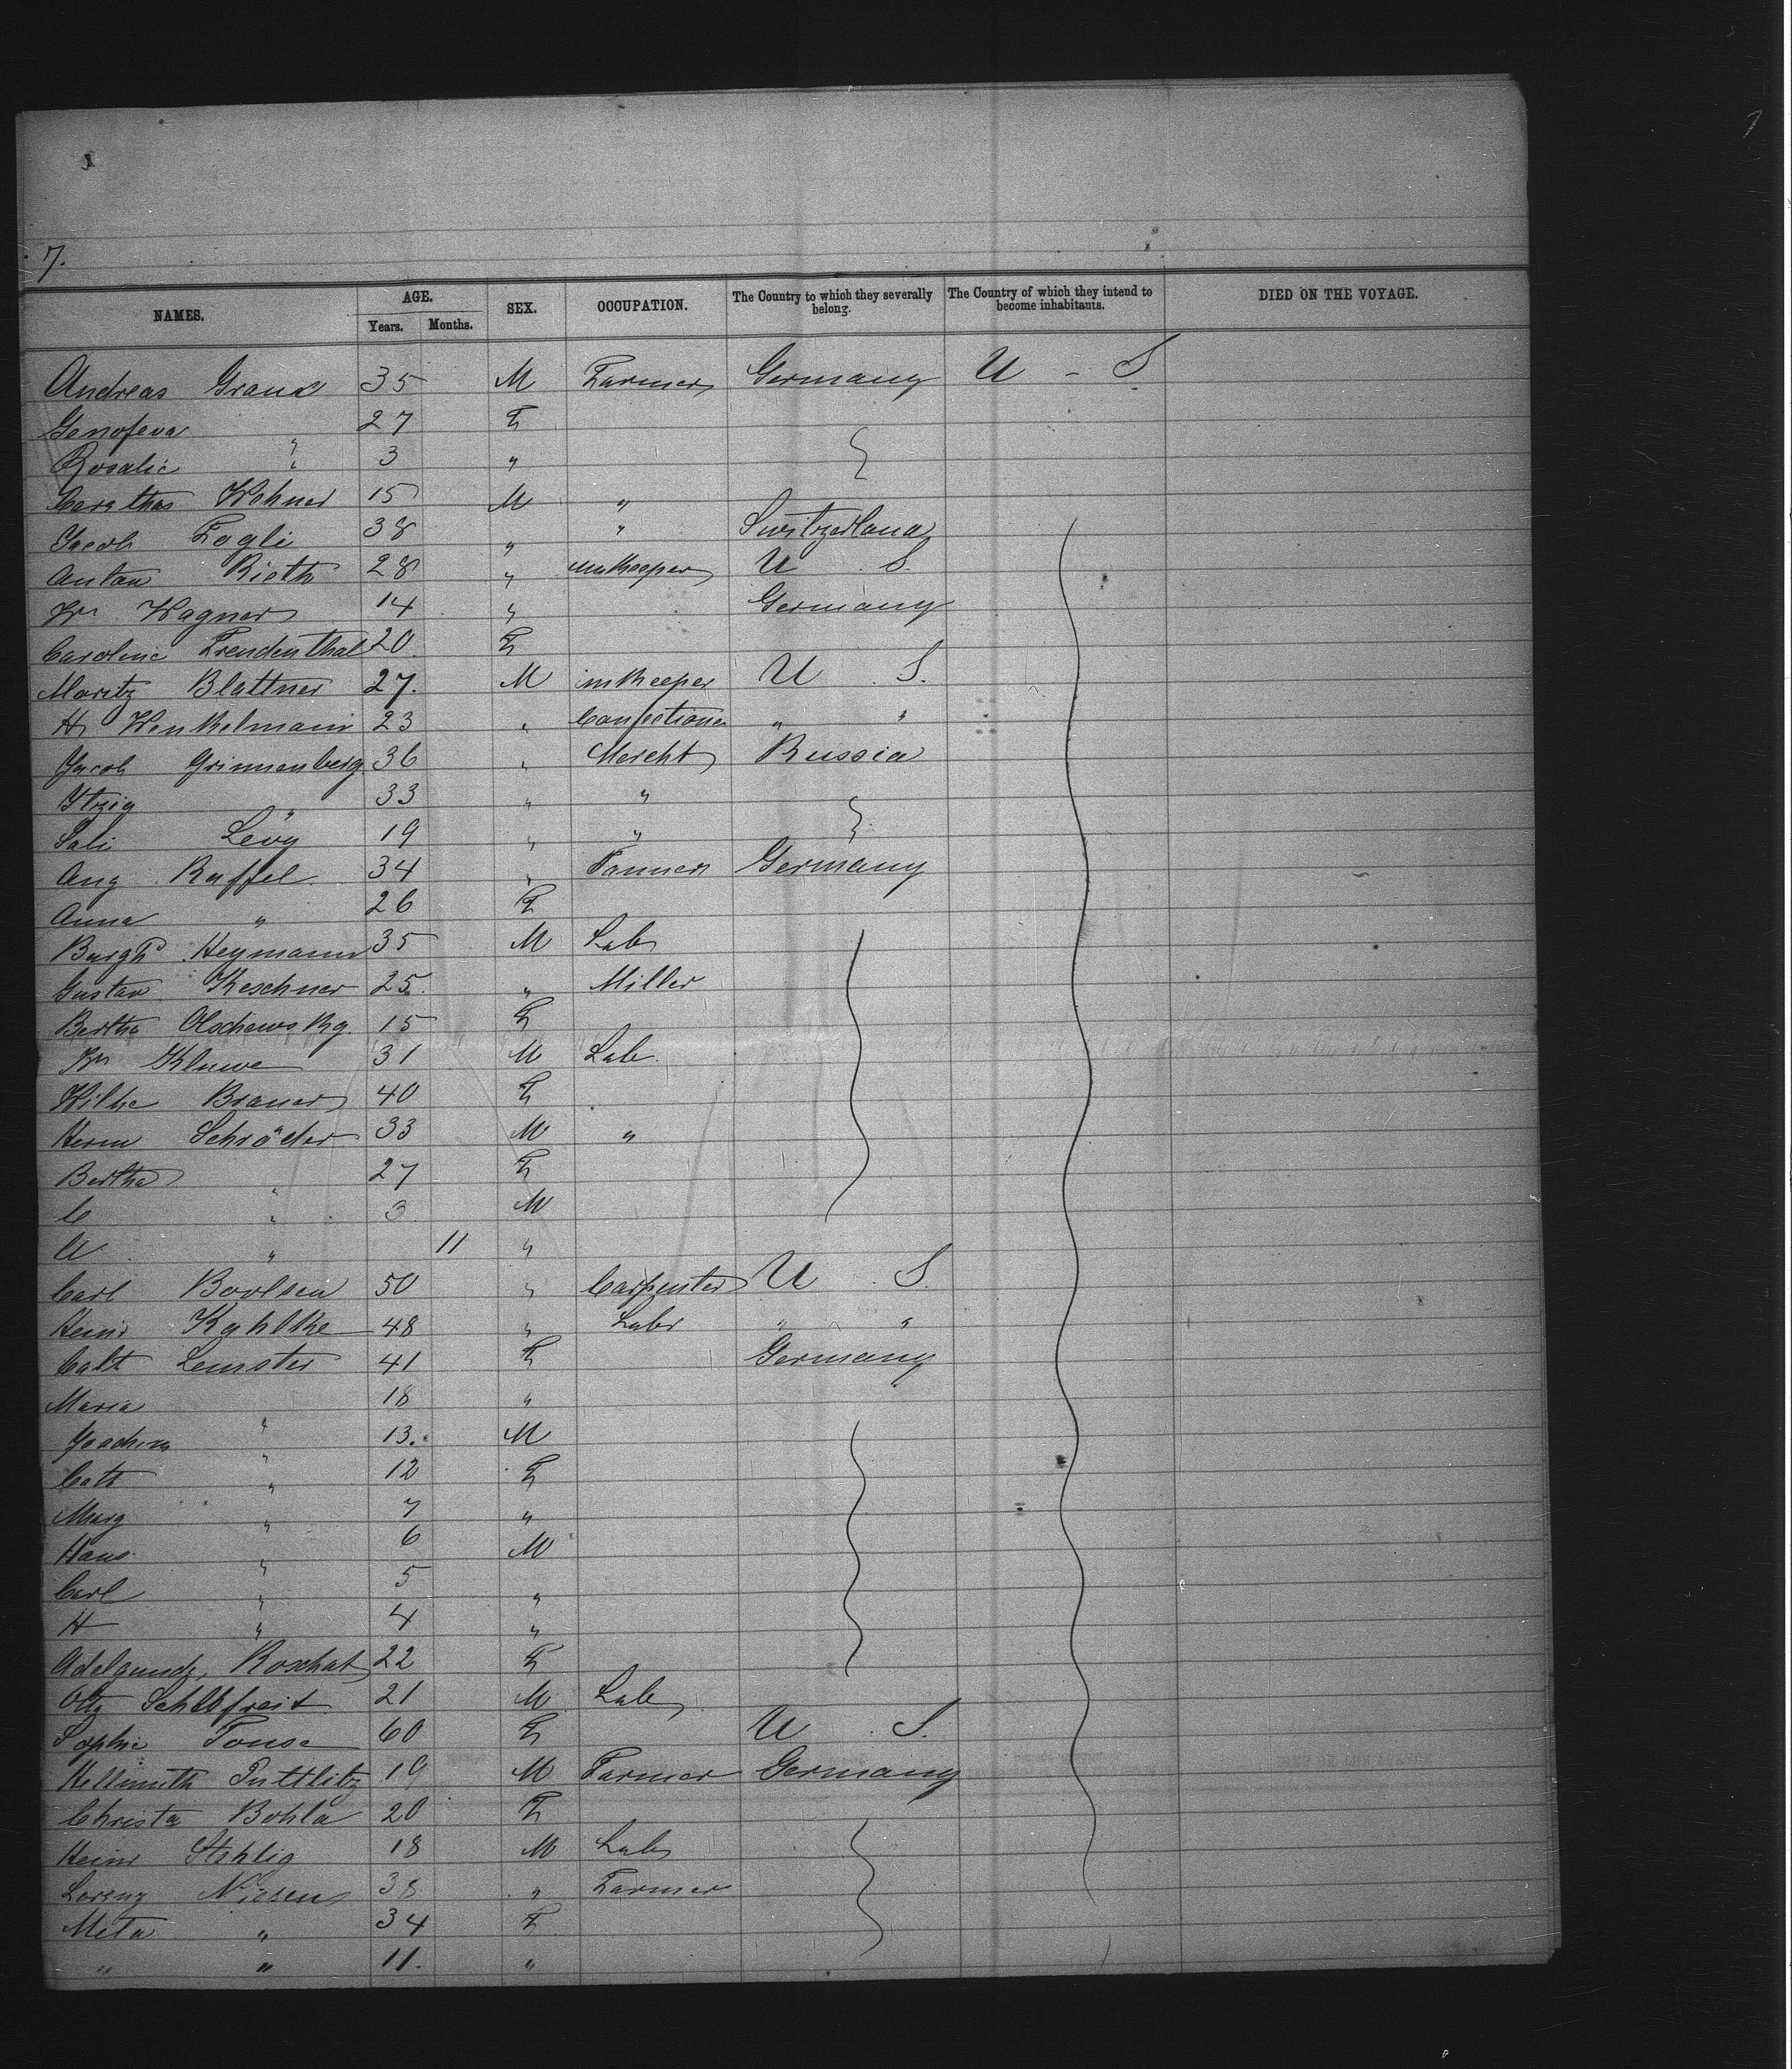 7.
NAMES. AGE. Years. Months. SEX. OCCUPATION. The Country to which they severally belong. The Country of which they intend to become inhabitants. DIED ON THE VOYAGE.
Andreas 35 M Farmer Germany U - S
Genofeva 27 F
Rosalie " 3 "
Wehner 15 M "
Jacob Fogli 38 " " Switzerland
Anton Rieth 28 " innkeeper U S.
Wm Wagner 14 " Germany
Caroline Freudenthal 20 F
Moritz Blattner 27. M innkeeper U S.
H Wenkelmann 23 " Confectioner " "
Jacob Grinnenberg 36 " Mercht Russia
Itzig " 33 " "
Sali Levy 19 " "
Aug Raffel 34 " Tanner Germany
Anna " 26 F
Heymann 35 M Lab
Gustav Keschner 25. " Miller
Bertha Olschewsky. 15 F
Wm Kluwe 31 M Lab.
Wilhe Brauer 40 F
Herm Schröder 33 M "
Bertha " 27 F
C " 3 M
U " 11 "
Carl Boolsen 50 " Carpenter U S.
Heinr Kahlke 48 " Labr " "
Cath Lemster 41 F Germany
Maria " 18 "
Joachim " 13. M
Cath " 12 F
Marg " 7 "
Hans " 6 M
Carl " 5 "
H " 4 "
Adelgunde Roschat 22 F
Otto 21 M Lab
Sophie 60 F U S.
Hellmuth Puttlitz 19 M Farmer Germany
Christa Bohla 20 F
Heinr Stehlig 18 M Lab
Lorenz Nissen 38 " Farmer
Meta " 34 F
" " 11. "